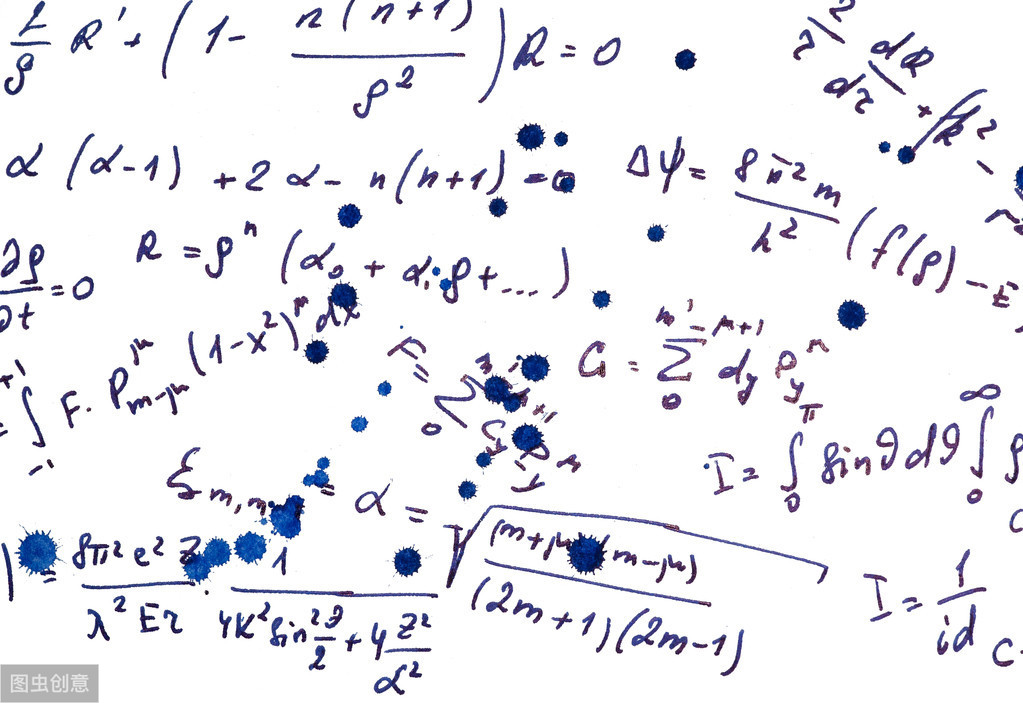 2/ρ R' + (1 - n(n+1)/ρ²) R = 0
2/r dR/dr + (k² -
α(α-1) + 2α - n(n+1) = 0
Δψ = 8π²m/h² (f(ρ) - E
∂ρ/∂t = 0
R = ρⁿ (α₀ + α₁ρ + ...)
+1 ∫ -1 F · P^μ_{m-μ} (1-x²)^μ dx
F = Σ 0
G = Σ 0 m'-μ+1 d_y P_y^μ
I = ∫₀^π sinϑ dϑ ∫₀^∞ ρ
ξ_{m,m} = α = √((m+μ)(m-μ)/(2m+1)(2m-1))
= 8π²e²Z/λ²Er · 1/(4K² sin² ϑ/2 + 4 Z²/α²)
I = 1/id
c
图虫创意